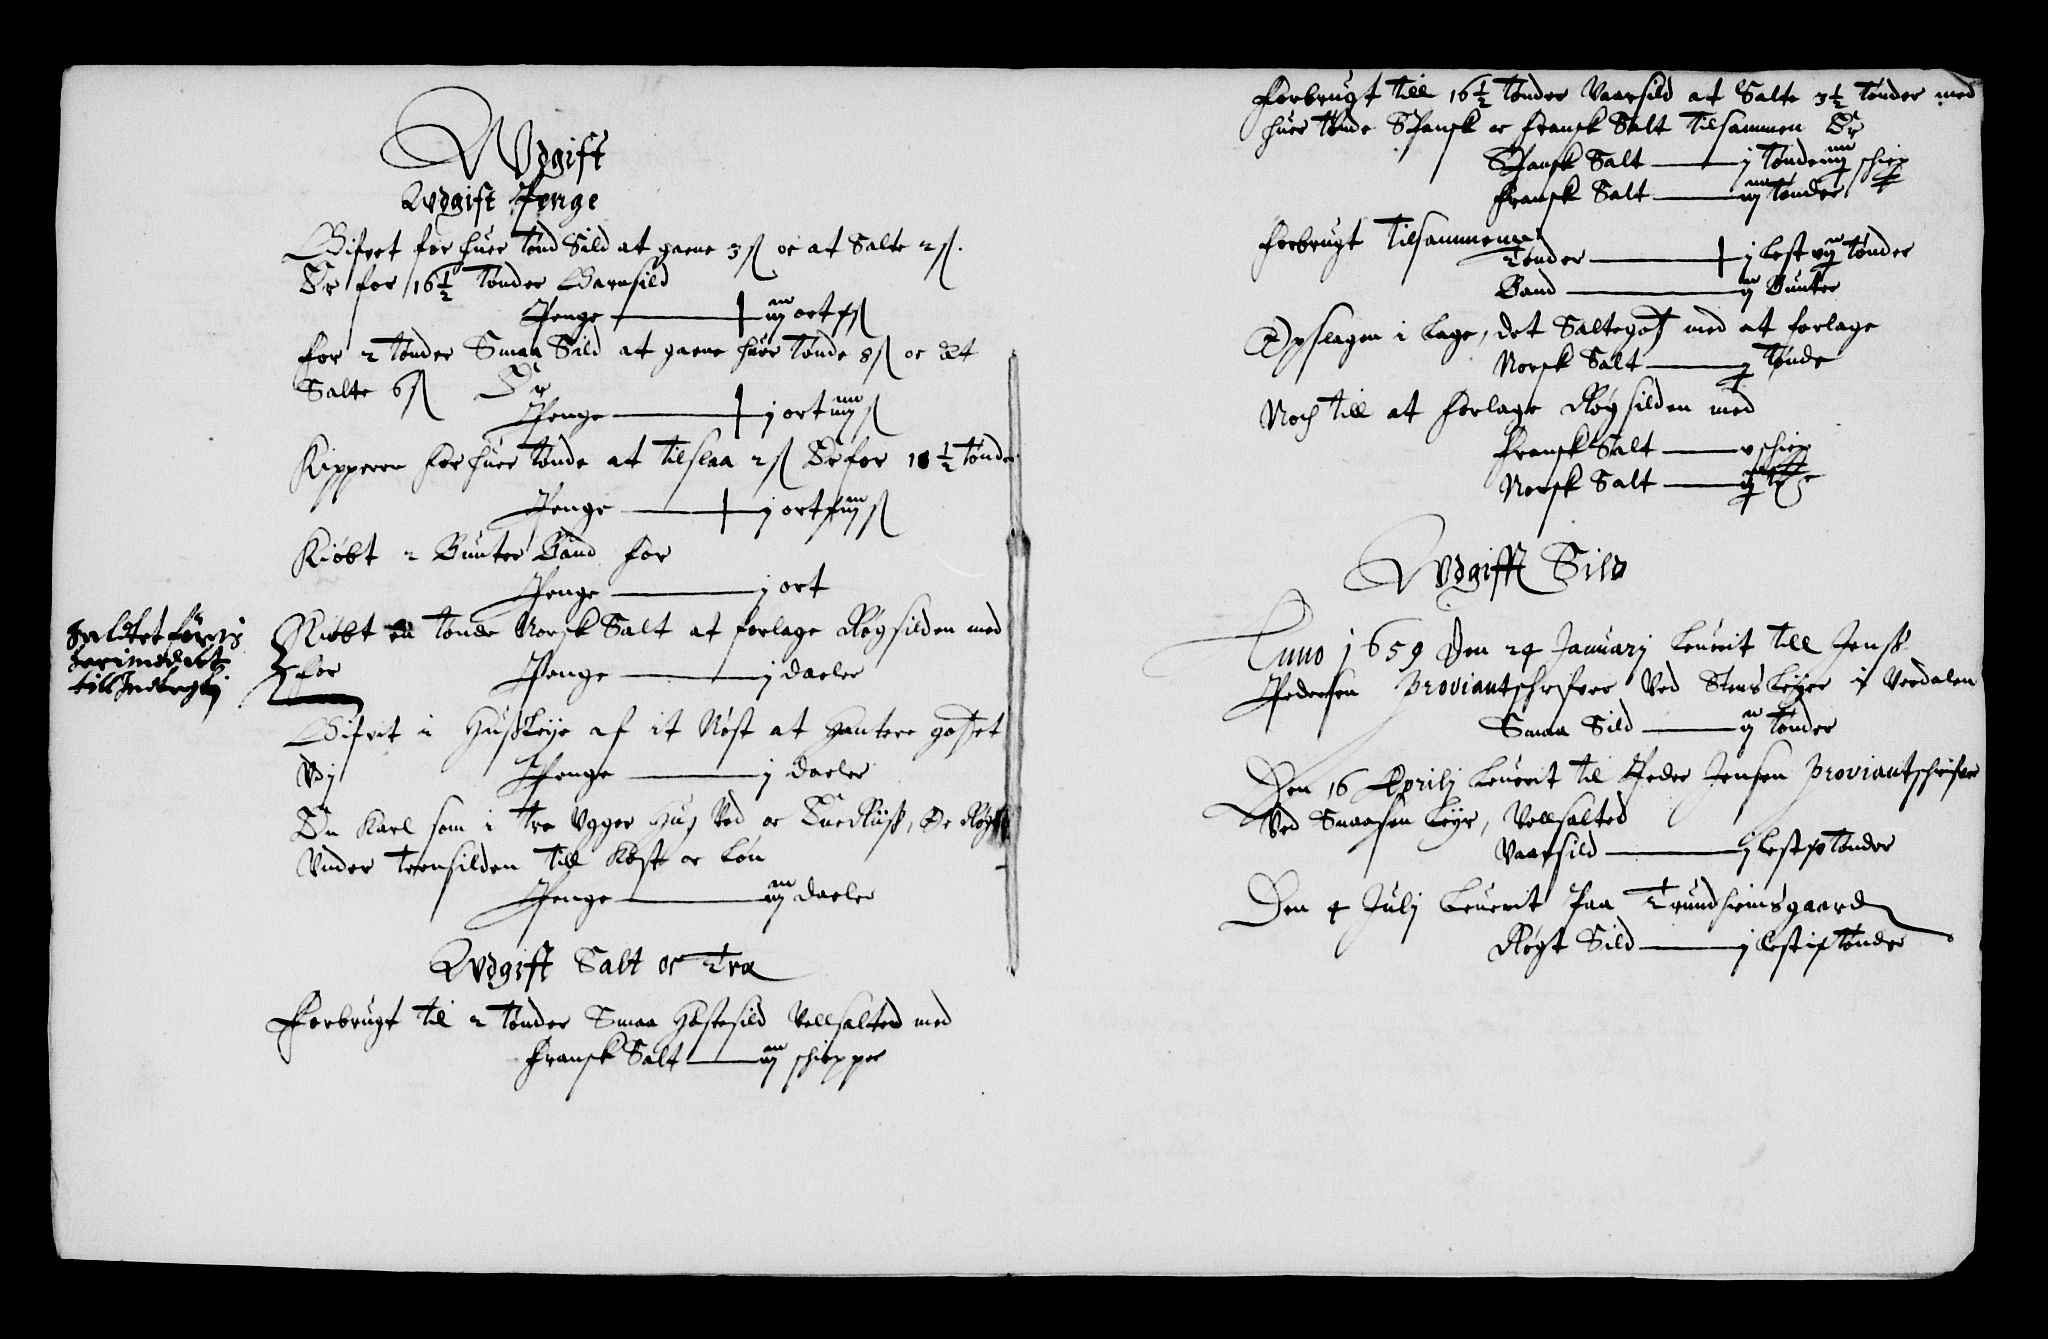 Wdgift
Wdgift Penge
Gifvet for huer tønd Sild at gaene 3 ß oc at Salte 2 ß.
Er for 16½ tønder Gamsild
Penge — iij ort
for 2 tønder Smaa Sild at gaene huer tønde 8 ß oc at
Salte 6 ß Er
Penge — j ort iiij ß
Kipperen for huer tønde at tilslaa 2 ß Er for 18½ tønde
Penge — j ort ß
Kiøbt 2 Bunter Band for
Penge — j ort
Kiøbt en tønde Norsk Salt at forlage Røgsilden med
for Penge — j daeler
Saltet føris
till Indtegt
Gifvit i Hußleye af it Nøst at Hantere godset
Vdj Penge — j daeler
En Karl som i tre Vgger Hug Ved oc
Vnder Tørrsilden till Kost oc Løn
Penge — iij daeler
Wdgift Salt oc Træ
Forbrugt til 2 tønder Smaa Høstesild Vellsalted med
Fransk Salt — iij schiepper
Forbrugt till 16½ tønder Vaarsild at Salte 3½ tønder med
huer tønde Spansk oc Fransk Salt tilsammen Er
Spansk Salt — j tønde schiep
Fransk Salt — iij tønder
Forbrugt tilsammen
Tønder — j Lest vij tønder
Band — ij Bunter
Opslagen i Lage, det Saltegods med at forlage
Norsk Salt — tønde
Noch till at forlage Røgsilden med
Fransk Salt — v schiep
Norsk Salt —
Wdgifft Sild
Anno 1659 Den 24 Januarj Leuerit till Jenß
Pedersen Proviantschrifver Ved Leyer i Verdalen
Smaa Sild — ij tønder
Den 16 Aprilj Leuerit til Peder Jensen Proviantschrifver
Ved Leyr, Vellsalted
Vaarsild — j Lest tønder
Den 4 Julj Leuerit Paa Trundheimsgaard
Røgt Sild — j Lest tønder